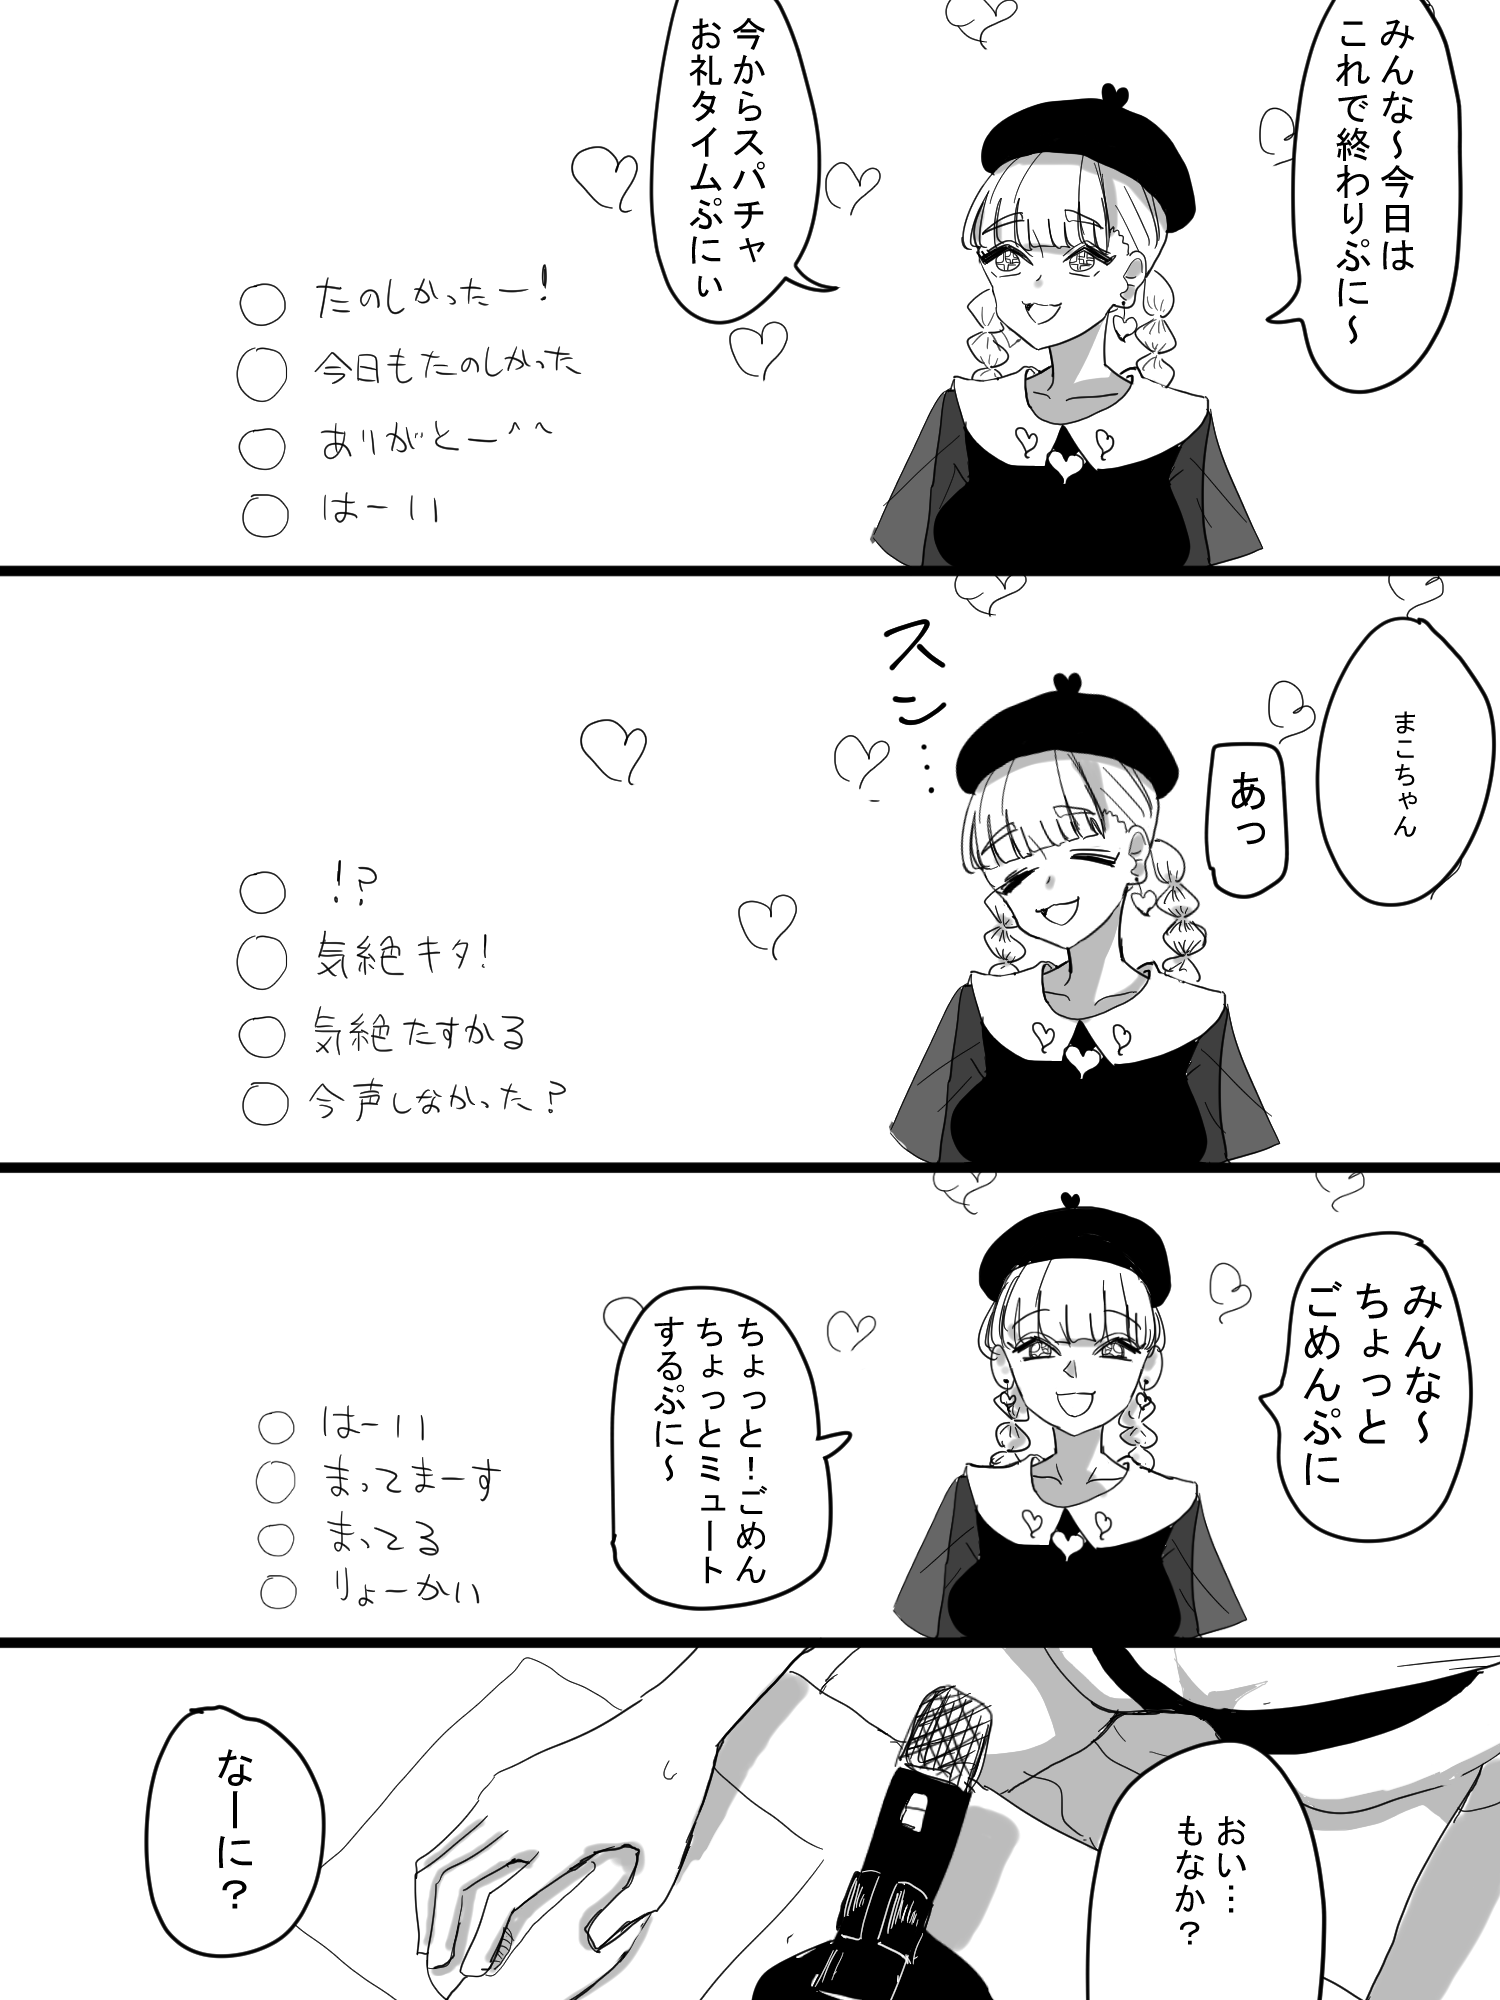 みんな〜今日は
これで終わりぷに〜
今からスパチャ
お礼タイムぷにぃ
たのしかったー!
今日もたのしかった
ありがとー^^
はーい
まこちゃん
あっ
スン…
!?
気絶キタ!
気絶たすかる
今声しなかった?
みんな〜
ちょっと
ごめんぷに
ちょっと!ごめん
ちょっとミュート
するぷに〜
はーい
まってまーす
まってる
りょーかい
おい…
もなか?
なーに?